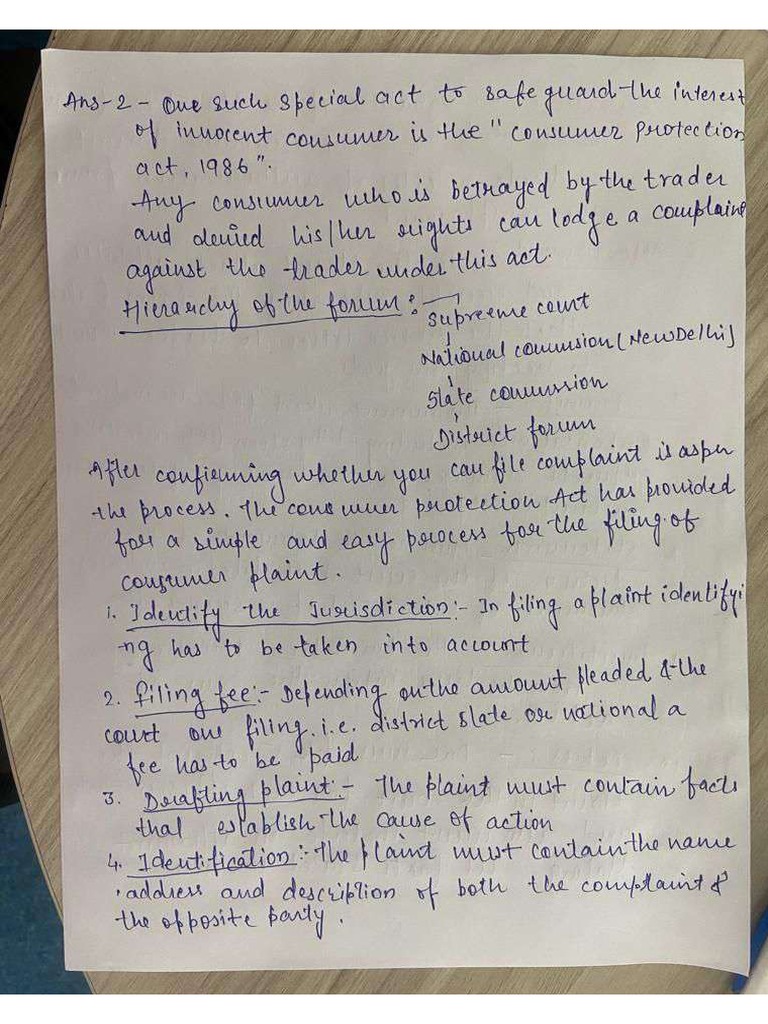 Ans-2 - One such special act to safe guard the interest
of innocent consumer is the "consumer protection
act, 1986".
Any consumer who is betrayed by the trader
and denied his/her rights can lodge a complaint
against the trader under this act.
Hierarchy of the forum:
Supreme court
National commsion (New Delhi)
State commission
District forum
After confirming whether you can file complaint is as per
the process. The consumer protection Act has provided
for a simple and easy process for the filing of
consumer plaint.
1. Identify the Jurisdiction:- In filing a plaint identifyi
ng has to be taken into account
2. filing fee:- Depending on the amount pleaded & the
court one filing. i.e. district state or national a
fee has to be paid
3. Drafting plaint:- The plaint must contain facts
that establish the cause of action
4. Identification:- The plaint must contain the name
, address and description of both the complaint &
the opposite party.